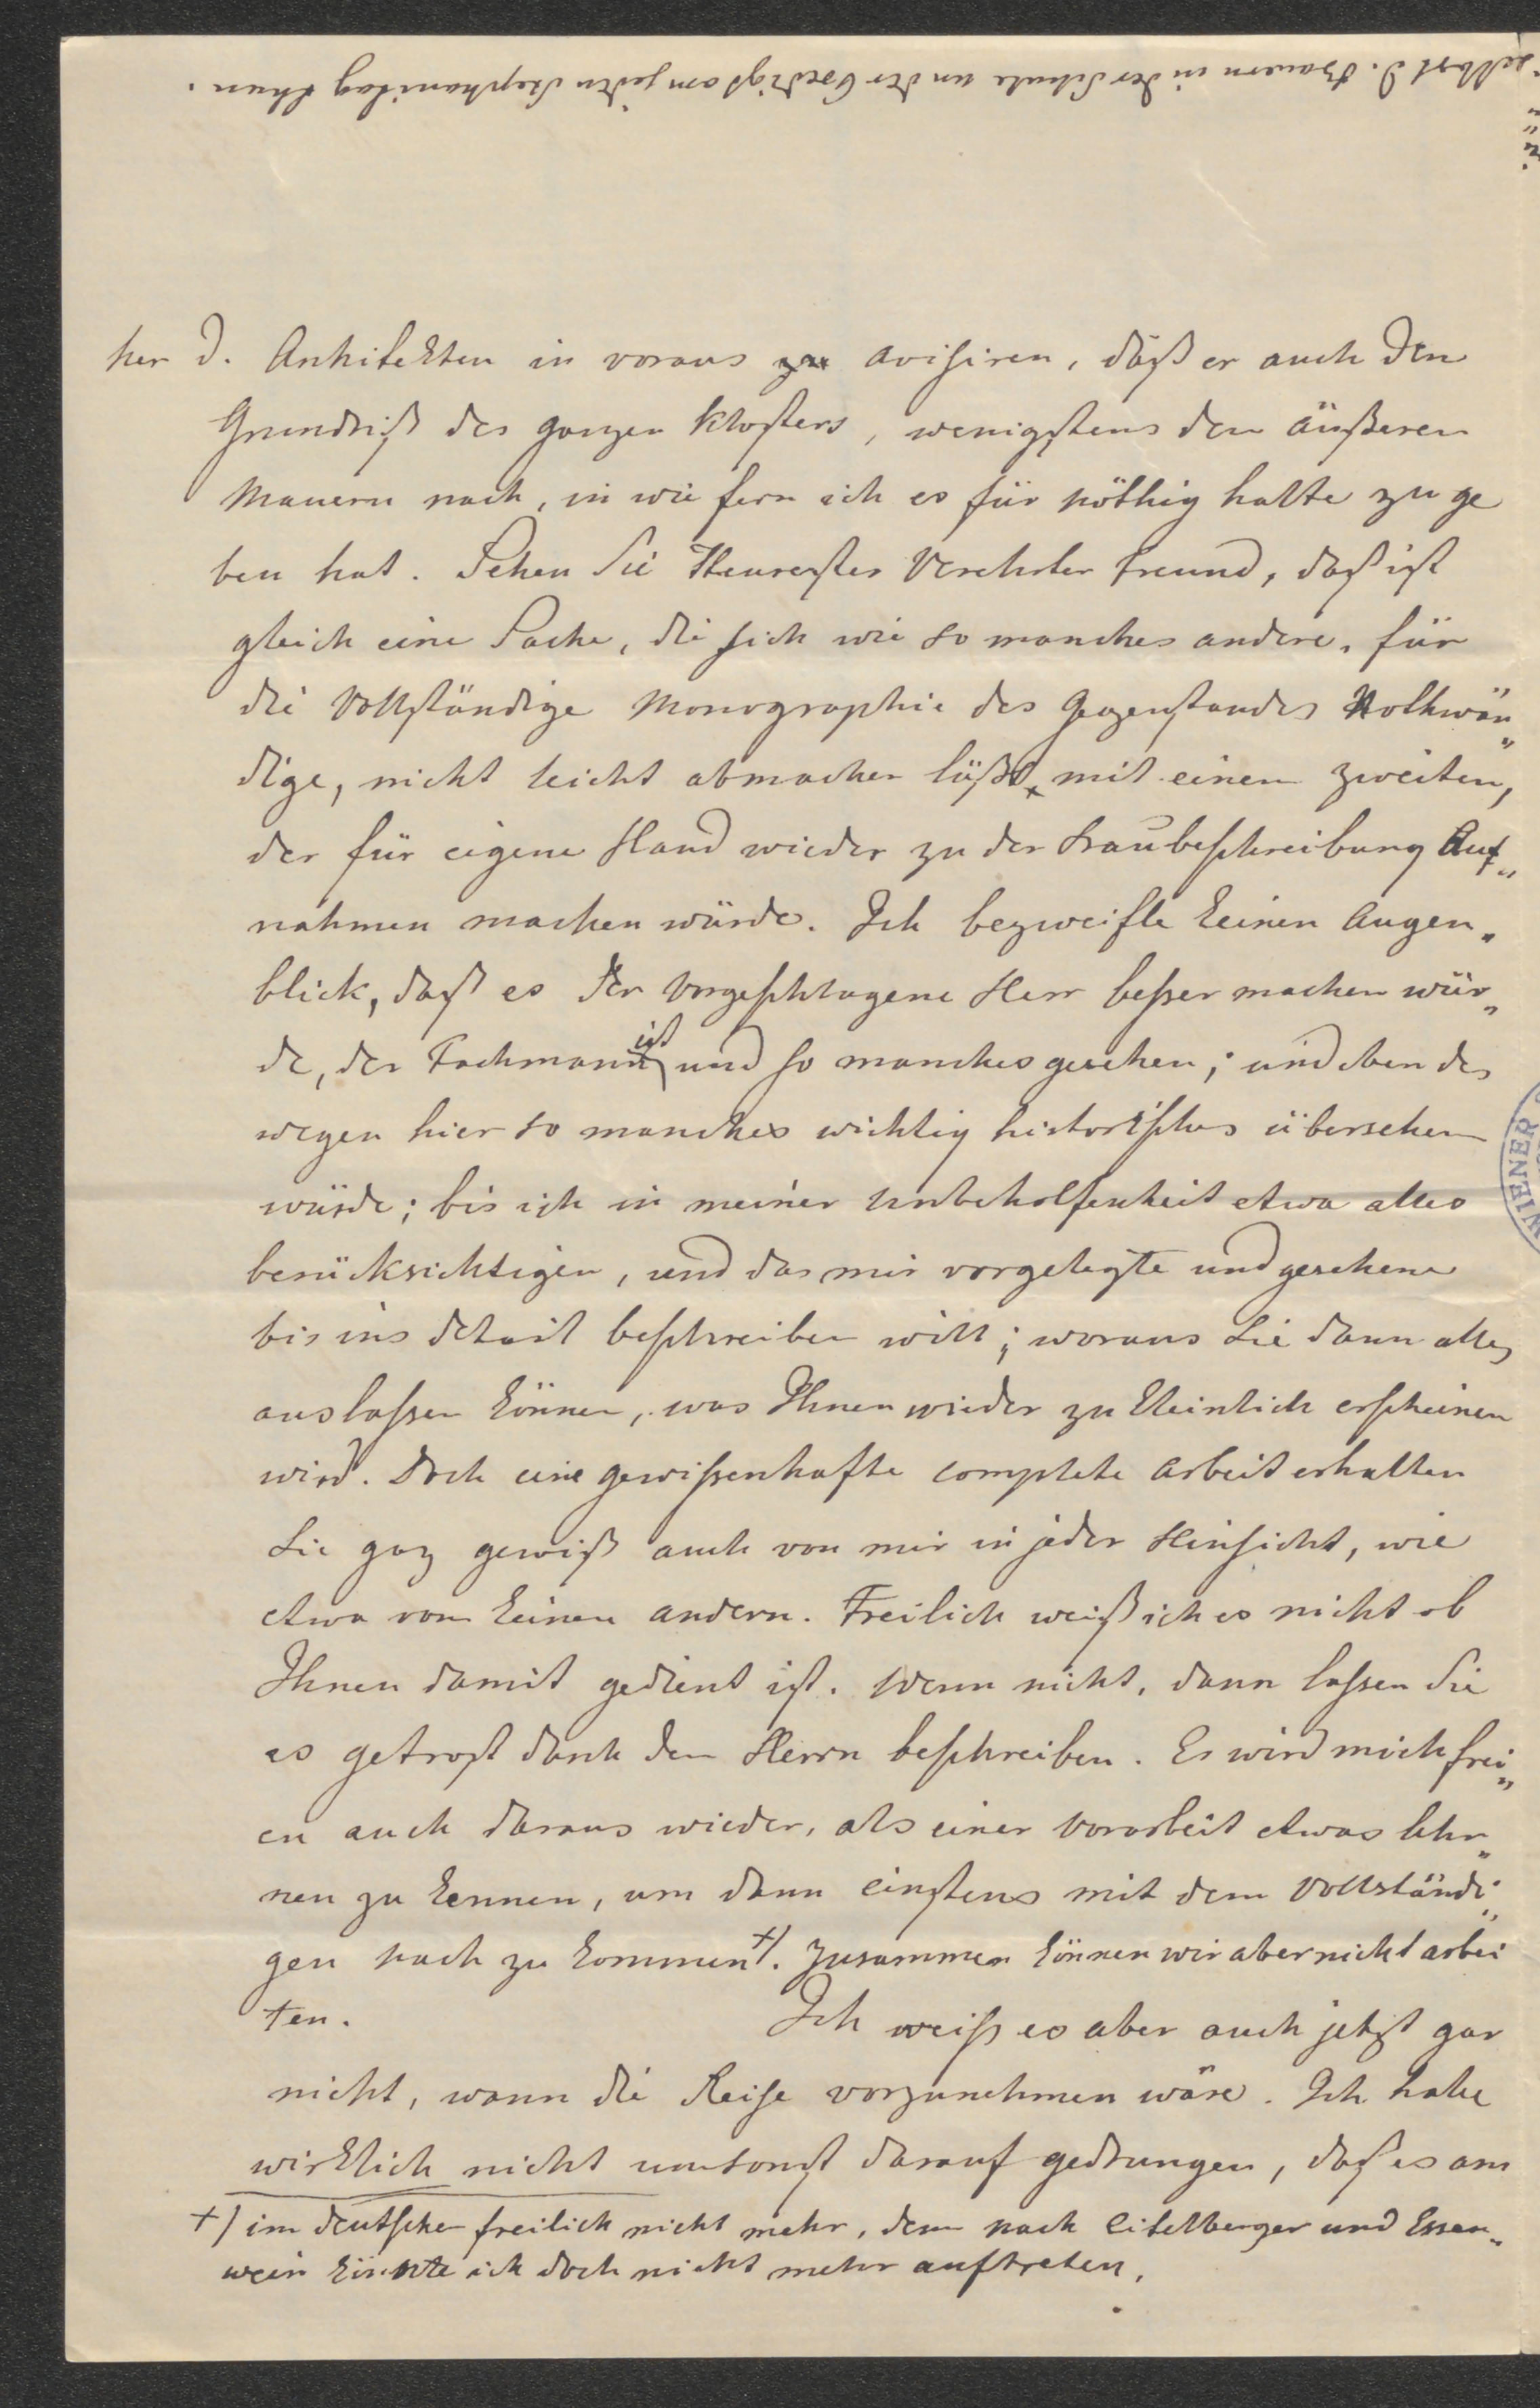 selbst d. Bauern in der Schule un der Predigt am jeden Stephanitag thun.
her d. Architekten in voraus zu avisiren, daß er auch den
Grundriß des ganzen Klosters, wenigstens den äußeren
Mauern nach, in wie fern ich es für nöthig halte zu ge
ben hat. Sehen Sie Theurester Verehrter Freund, daß ist
gleich eine Sache, die sich wie so manches andere, für
die Vollständige Monographie des Gegenstandes Nothwän„
dige, nicht leicht abmachen läßt, mit einem zweiten,
der für eigene Hand wieder zu der Baubeschreibung Auf„
nahmen machen würde. Ich bezweifle keinen Augen„
blick, daß es der Vorgeschlagene Herr beßer machen wür„
de, der Fachmann ist und so manches gesehen; und eben des
wegen hier so manches wichtig historisches übersehen
würde; bis ich in meiner Unbeholfenheit etwa alles
berücksichtigen, und das mir vorgelegte und gesehene
bis ins detail beschreiben will; woraus Sie dann alles
auslaßen können, was Ihnen wieder zu kleinlich erscheinen
wird. Doch eine gewißenhafte complete Arbeit erhalten
Sie gaz gewiß auch von mir in jeder Hinsicht, wie
etwa vom keinen andern. Freilich weiß ich es nicht ob
Ihnen damit gedient ist. Wenn nicht, dann laßen Sie
es getrost durch den Herrn beschreiben. Es wird mich frei„
en auch daraus wieder, als einer Vorarbeit etwas lehr„
nen zu kennen, um dann einstens mit dem Vollständi„
gen nach zu kommen +). Zusammen können wir aber nicht arbei
ten. Ich weiß es aber auch jetzt gar
nicht, wann die Reise vorzunehmen wäre. Ich habe
wirklich nicht umsonst darauf gedrungen, daß es am
+) im deutschen freilich nicht mehr, denn nach Eitelberger und Essen„
wein könnte ich doch nicht mehr auftreten.
WIENER